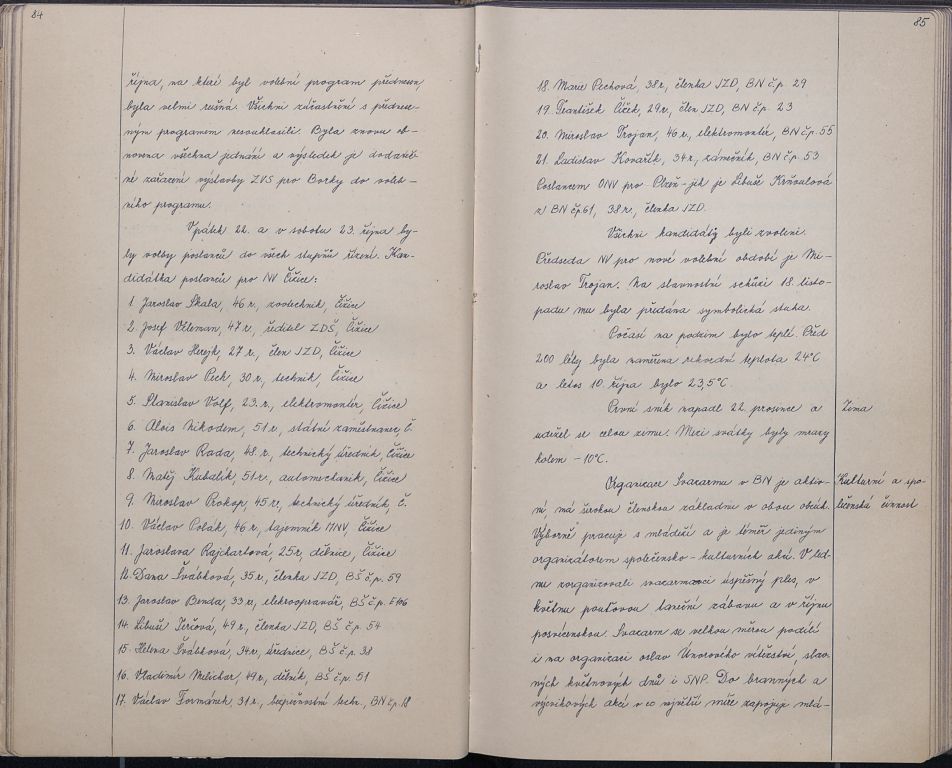 84
října, na které byl volební program přednesen,
byla velmi rušná. Všichni zúčastnění s předne-
ným programem nesouhlasili. Byla znovu ob-
novena všechna jednání a výsledek je dodateč-
né zařazení výstavby ZVS pro Borky do voleb-
ního programu.
V pátek 22. a v sobotu 23. října by-
ly volby poslanců do všech stupňů řízení. Kan-
didátka poslanců pro NV Čižice:
1. Jaroslav Skala, 46 r., zootechnik, Čižice
2. Josef Uleman, 47 r., ředitel ZDŠ, Čižice
3. Václav Herejk, 27 r., člen JZD, Čižice
4. Miroslav Pech, 30 r., technik, Čižice
5. Stanislav Volf, 23 r., elektromontér, Čižice
6. Alois Nikodem, 51 r., státní zaměstnanec, Č.
7. Jaroslav Rada, 48 r., technický úředník, Čižice
8. Matěj Kubalík, 51 r., automechanik, Čižice
9. Miroslav Prokop, 45 r., technický úředník, Č.
10. Václav Polák, 46 r., tajemník MNV, Čižice
11. Jaroslava Rajchartová, 25 r., dělnice, Čižice
12. Dana Švábková, 35 r., členka JZD, BŠ č.p. 59
13. Jaroslav Benda, 33 r., elekroopravář, BŠ č.p. E106
14. Libuše Terčová, 49 r., členka JZD, BŠ č.p. 54
15. Helena Švábková, 34 r., úřednice, BŠ č.p. 38
16. Vladimír Milichar, 49 r., dělník, BŠ č.p. 51
17. Václav Formánek, 31 r., bezpečnostní techn., BN č.p. 18
85
18. Marie Pechová, 38 r., členka JZD, BN č.p. 29
19. František Čížek, 29 r., člen JZD, BN č.p. 23
20. Miroslav Trojan, 46 r., elektromontér, BN č.p. 55
21. Ladislav Kovařík, 34 r., zámečník, BN č.p. 53
Poslancem ONV pro Plzeň-jih je Libuše Krňoulová
z BN č.p. 61, 38 r., členka JZD.
Všichni kandidáti byli zvoleni.
Předseda NV pro nové volební období je Mi-
roslav Trojan. Na slavnostní schůzi 18. listo-
padu mu byla předána symbolická stuha.
Počasí na podzim bylo teplé. Před
200 léty byla naměřena rekordní teplota 24°C
a letos 10. října bylo 23,5°C.
První sníh napadl 22. prosince a
udržel se celou zimu. Mezi svátky byly mrazy
kolem -10°C.
Zima
Organizace Svazarmu v BN je aktiv-
ní, má širokou členskou základnu v obou obcích.
Výborně pracuje s mládeží a je téměř jediným
organizátorem společensko-kulturních akcí. V led-
nu zorganizovali svazarmovci úspěšný ples, v
květnu pouťovou taneční zábavu a v říjnu
posvícenskou. Svazarm se velkou měrou podílí
i na organizaci oslav Únorového vítězství, slav-
ných květnových dnů i SNP. Do branných a
výcvikových akcí v co největší míře zapojuje mlá-
Kulturní a spo-
lečenská činnost